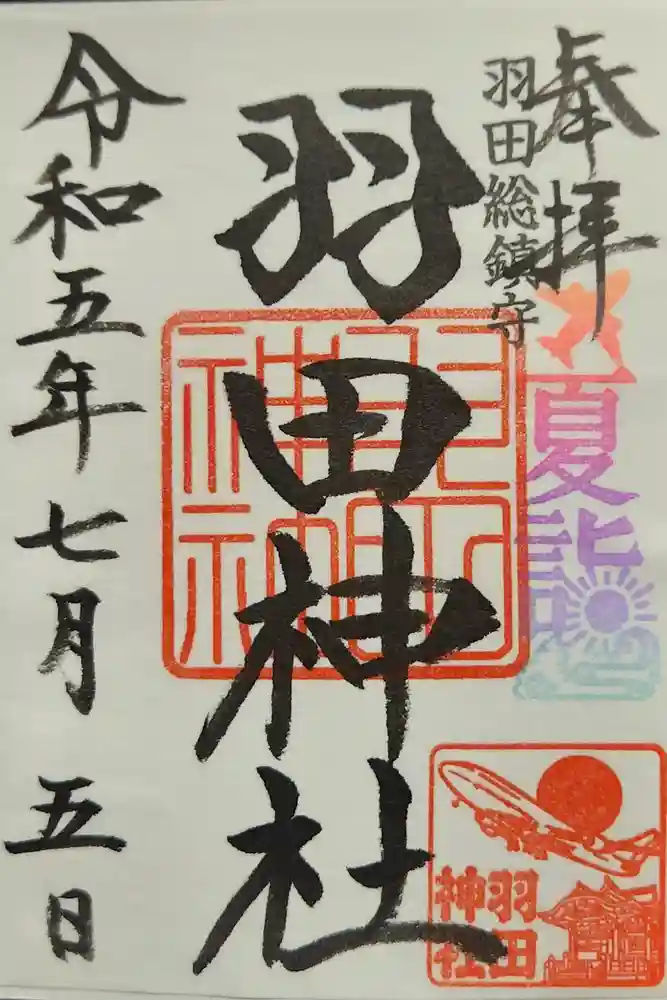 奉拝
羽田総鎮守
夏詣
羽田神社
羽田
神社
令和五年七月五日